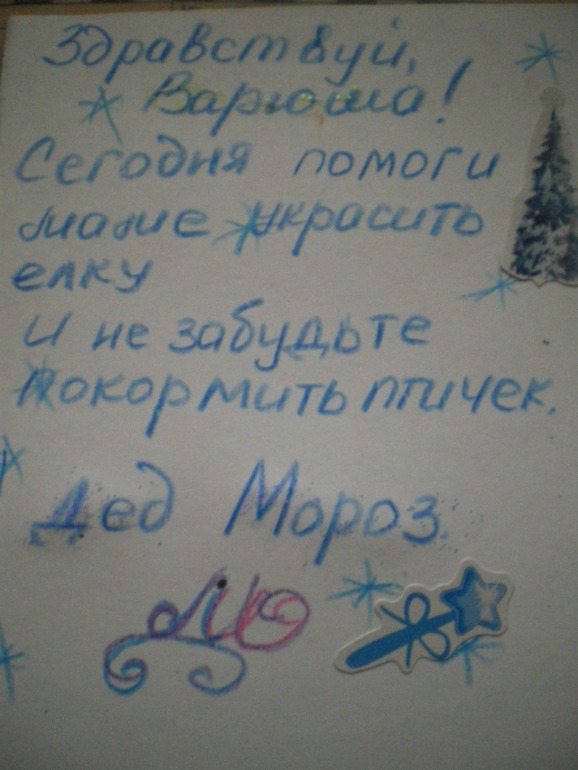 Здравствуй,
Варюша!
Сегодня помоги
маме украсить
елку
И не забудьте
покормить птичек.
Дед Мороз